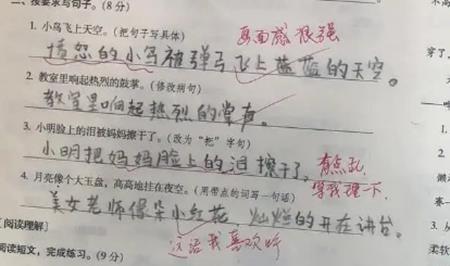 二、按要求写句子。(8分)
1. 小鸟飞上天空。(把句子写具体)
画面感很强
愤怒的小鸟被弹弓飞上蓝蓝的天空。
2. 教室里响起热烈的鼓掌。(修改病句)
教室里响起热烈的掌声。
3. 小明脸上的泪被妈妈擦干了。(改为“把”字句)
小明把妈妈脸上的泪擦干了。
有点乱,
容我理一下,
4. 月亮像个大玉盘,高高地挂在夜空。(用带点的词写一句话)
美女老师像朵小红花,灿烂的开在讲台。
这话我喜欢听
[阅读理解]
阅读短文,完成练习。(9分)
穿了。
1.
2.
3.
柔软